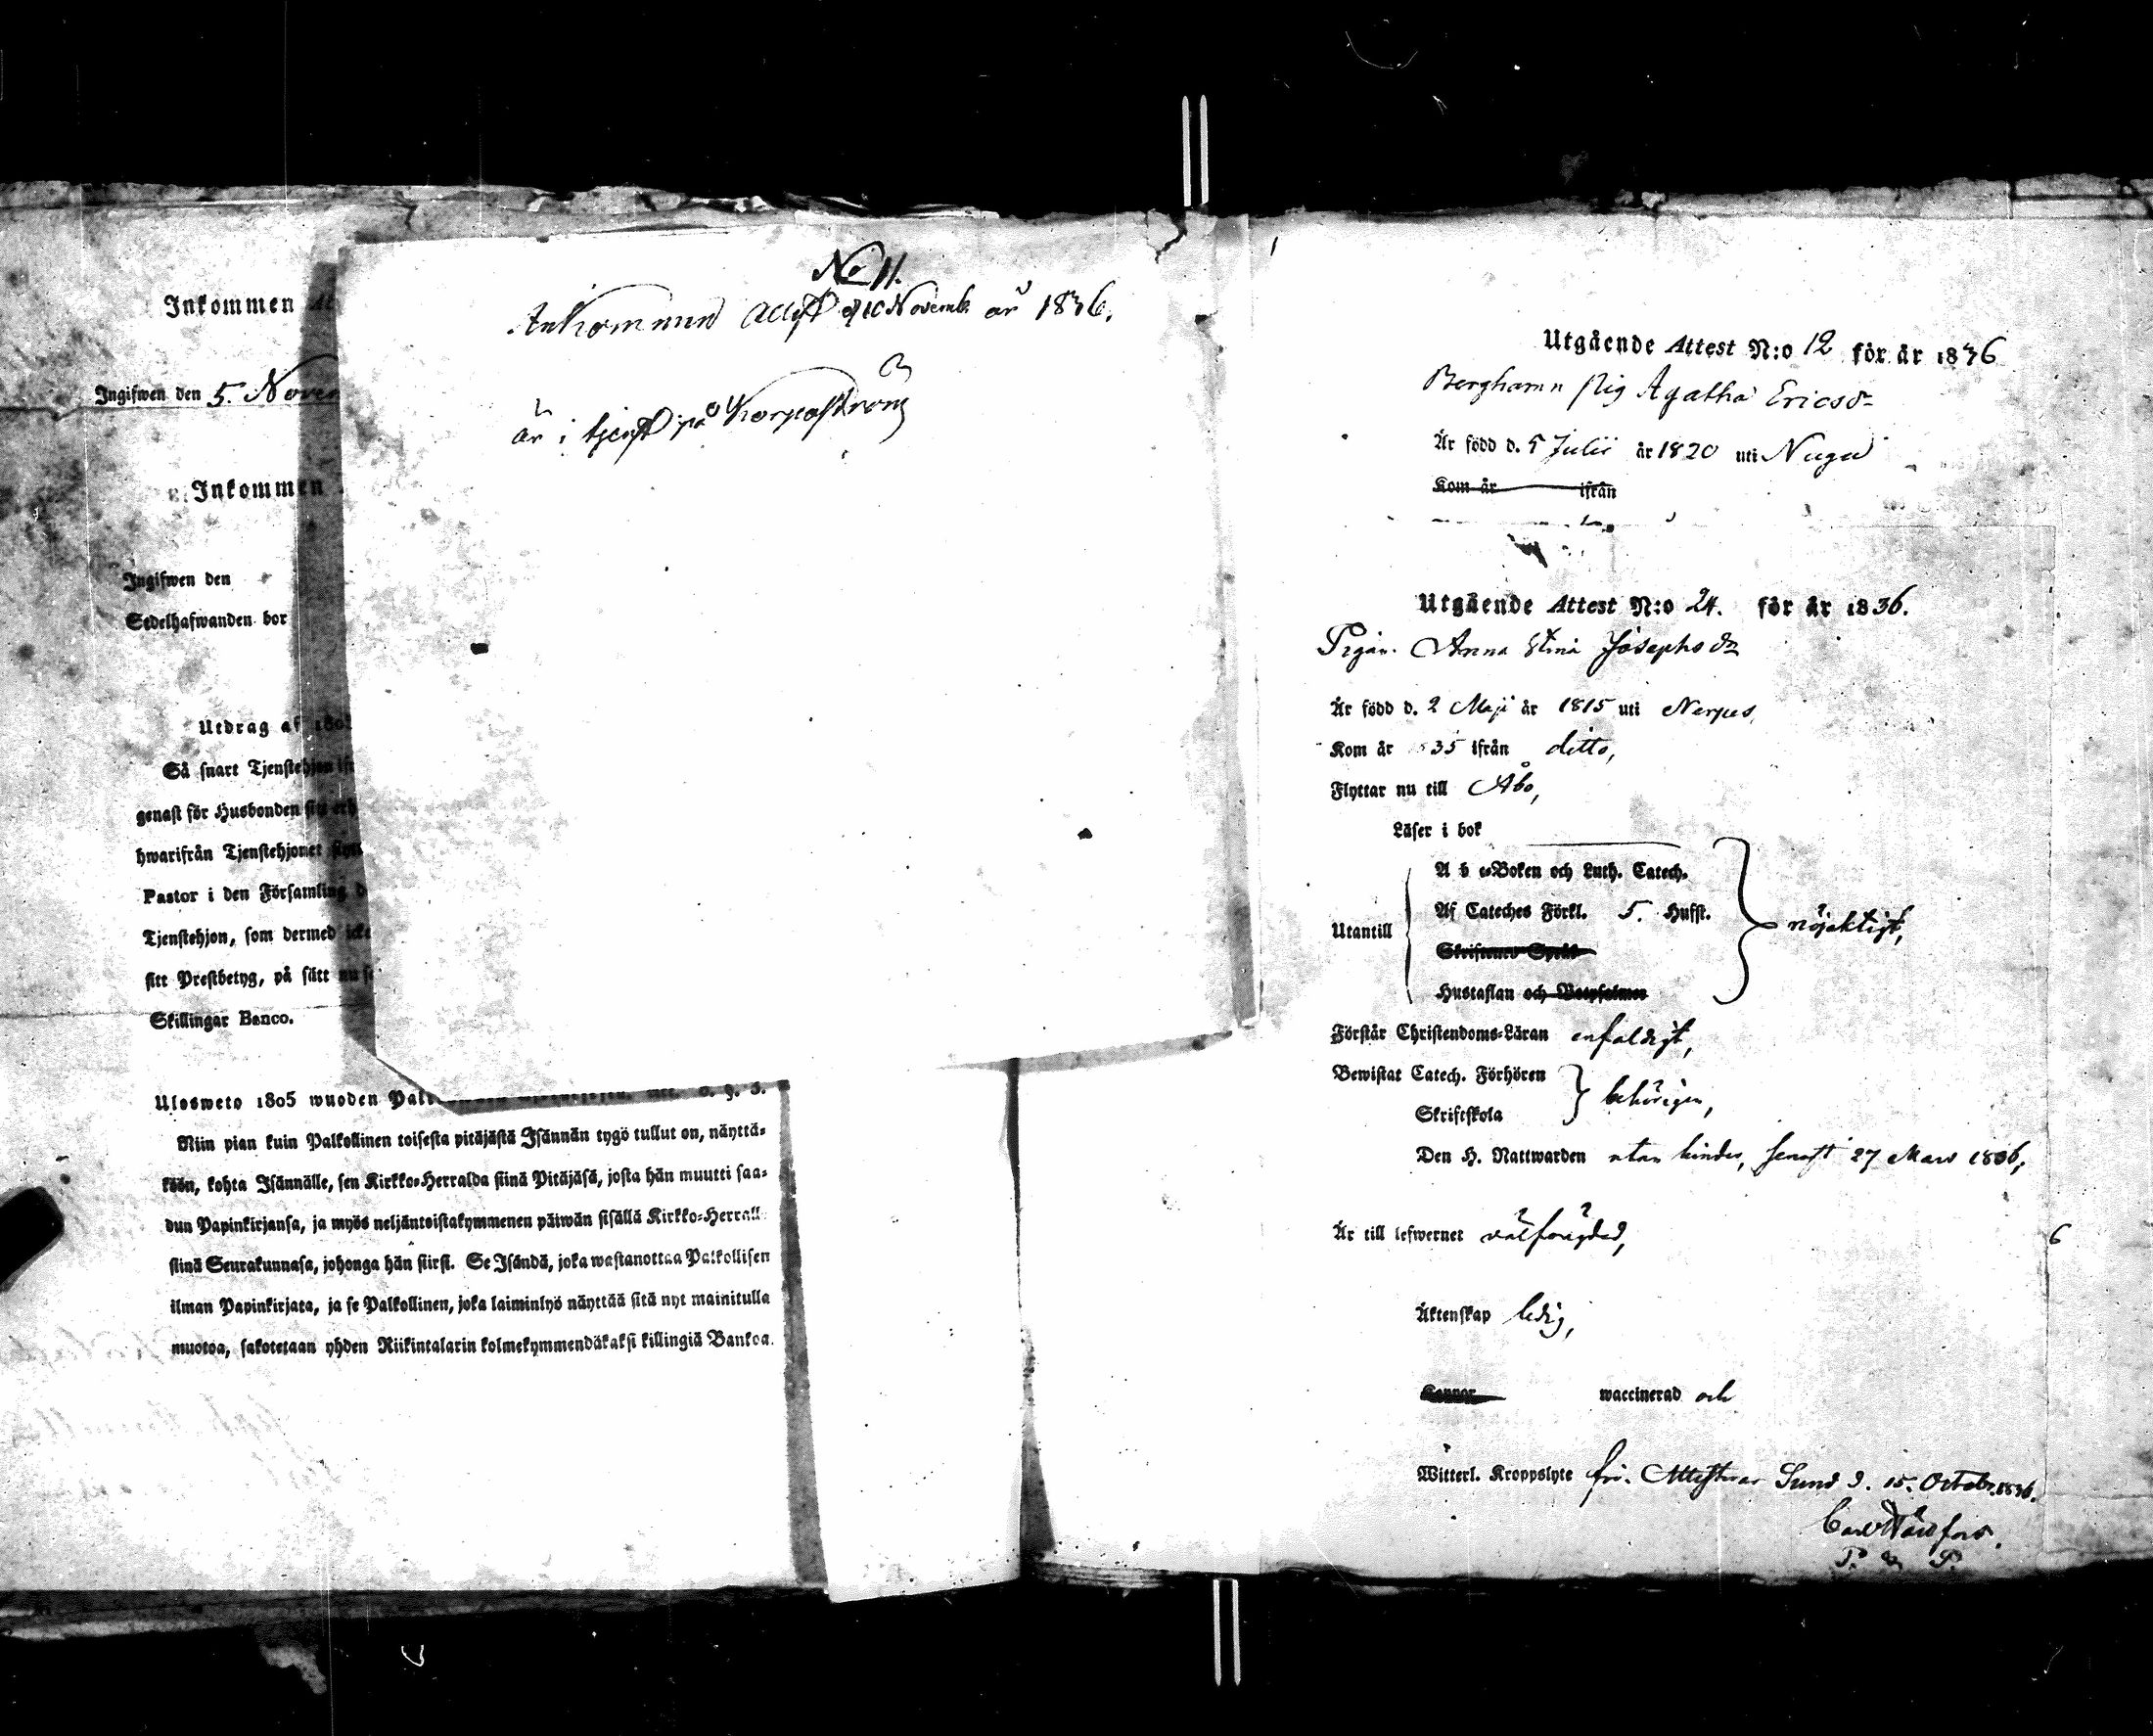 Inkommen
Ingifwen den 5. Novem
Inkommen
Ingifwen den
Sedelhafwanden bor
Utdrag af 1805
Så snart Tjenstehjon ifr
genast för Husbonden sitt erh
hwarifrån Tjenstehjonet flytt
Pastor i den Församling d
Tjenstehjon, som dermed icke
sitt Prestbetyg, på sätt nu s
Skillingar Banco.
Ulosweto 1805 wuoden Palk
Niin pian kuin Palkollinen toisesta pitäjästä Isännän tygö tullut on, näyttä-
köön, kohta Isännälle, sen Kirkko-Herralda siinä Pitäjäsä, josta hän muutti saa-
dun Papinkirjansa, ja myös neljäntoistakymmenen päiwän sisällä Kirkko-Herrall
siinä Seurakunnasa, johonga hän siirsi. Se Isändä, joka wastanottaa Palkollisen
ilman Papinkirjata, ja se Palkollinen, joka laiminlyö näyttää sitä nyt mainitulla
muotoa, sakotetaan yhden Riikintalarin kolmekymmendäkaksi killingiä Bankoa.
No 11.
Ankommen attest d 10 Novemb. år 1836.
är i tjenst på Korpoström
Utgående Attest N:o 12 för år 1836
Berghamn pig Agatha Ericsdr
Är född d. 5 Julii år 1820 uti Nagu
Kom år ifrån
Utgående Attest N:o 24. för år 1836.
Pigan Anna Stina Josephsdr
Är född d. 2 Maji år 1815 uti Nerpes,
Kom år 1835 ifrån ditto,
Flyttar nu till Åbo,
Läser i bok
A b c-Boken och Luth. Catech.
Af Cateches Förkl. 5. Hufst.
Utantill nöjaktigt,
Skriftenes Språk
Hustaflan och Botpsalmer
Förstår Christendoms-Läran enfaldigt,
Bewistat Catech. Förhören
behörigen,
Skriftskola
Den H. Nattwarden utan hinder, senast 27 Mars 1836,
Är till lefwernet välfrägdad,
6
Äktenskap ledig,
Koppor waccinerad och
Witterl. Kroppslyte fri. Attesterar Sund d. 15. Octobr. 1836.
Carl
P. P.